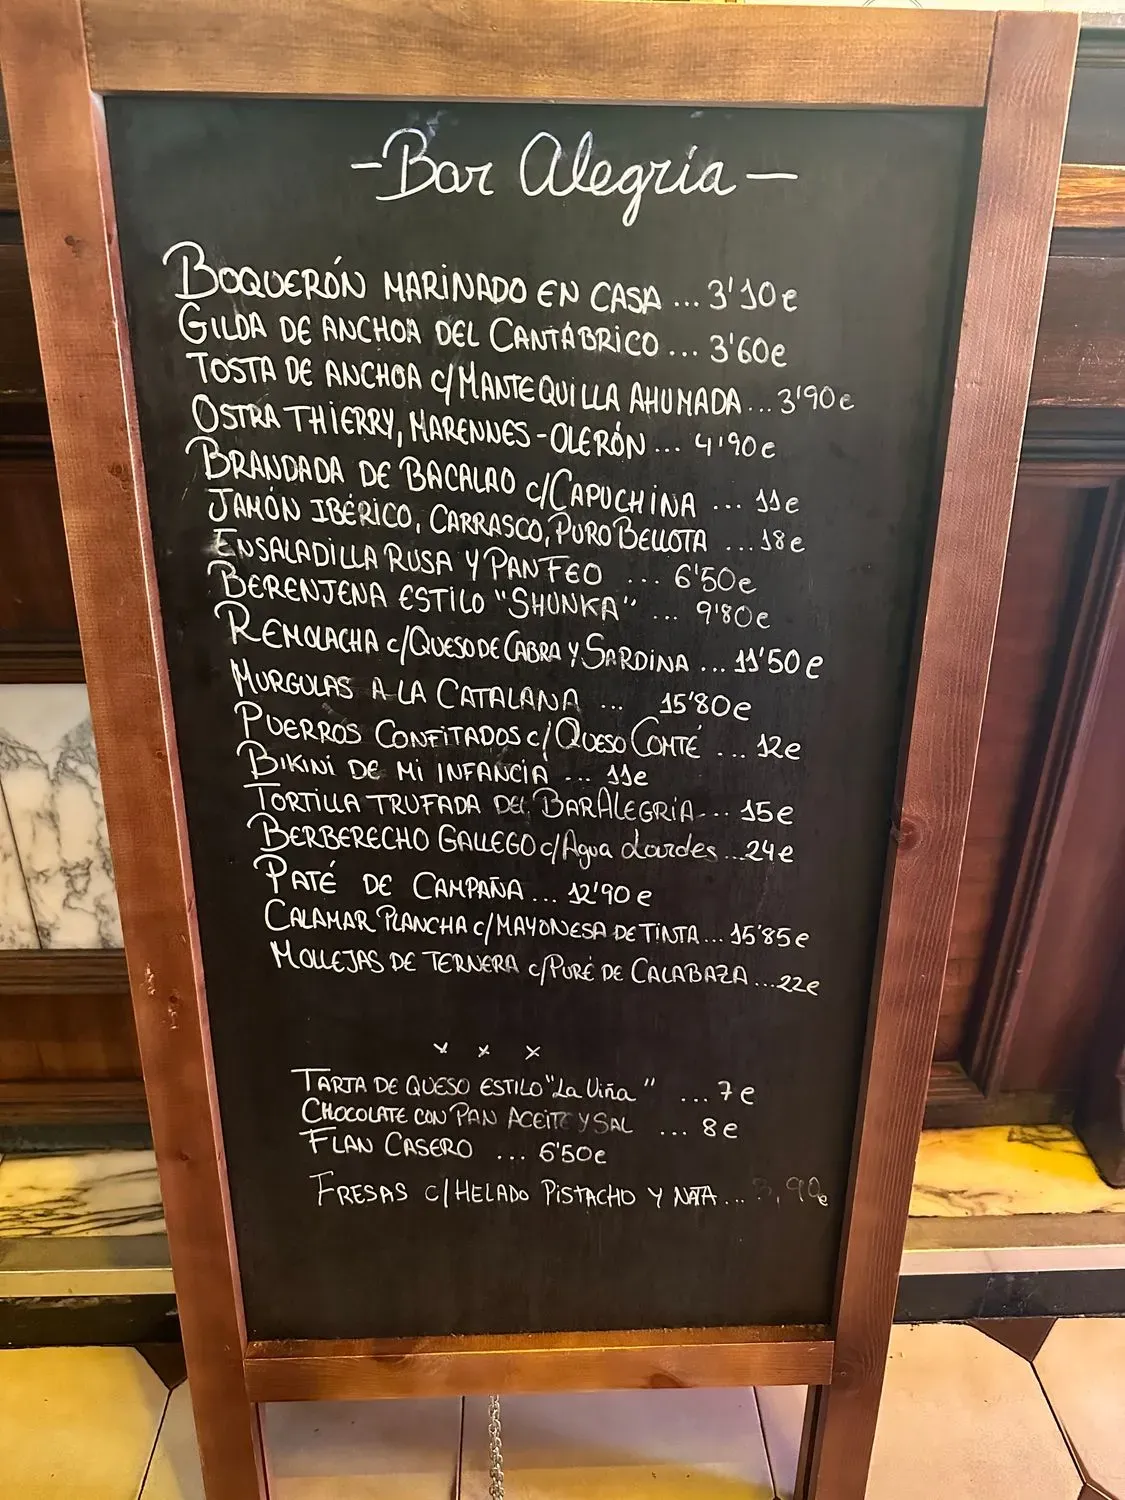 -Bar Alegría-
BOQUERÓN MARINADO EN CASA ... 3'10e
GILDA DE ANCHOA DEL CANTÁBRICO ... 3'60e
TOSTA DE ANCHOA c/MANTEQUILLA AHUMADA ... 3'90e
OSTRA THIERRY, MARENNES-OLERÓN ... 4'90e
BRANDADA DE BACALAO c/CAPUCHINA ... 11e
JAMÓN IBÉRICO, CARRASCO, PURO BELLOTA ... 18e
ENSALADILLA RUSA Y PAN FEO ... 6'50e
BERENJENA ESTILO "SHUNKA" ... 9'80e
REMOLACHA c/QUESO DE CABRA Y SARDINA ... 11'50e
MURGULAS A LA CATALANA ... 15'80e
PUERROS CONFITADOS c/QUESO COMTÉ ... 12e
BIKINI DE MI INFANCIA ... 11e
TORTILLA TRUFADA DEL BAR ALEGRÍA... 15e
BERBERECHO GALLEGO c/Agua Lourdes ...24e
PATÉ DE CAMPAÑA ... 12'90e
CALAMAR PLANCHA c/MAYONESA DE TINTA ... 15'85e
MOLLEJAS DE TERNERA c/PURÉ DE CALABAZA ...22e
x x x
TARTA DE QUESO ESTILO "La Viña" ... 7e
CHOCOLATE CON PAN ACEITE Y SAL ... 8e
FLAN CASERO ... 6'50e
FRESAS c/HELADO PISTACHO Y NATA ...